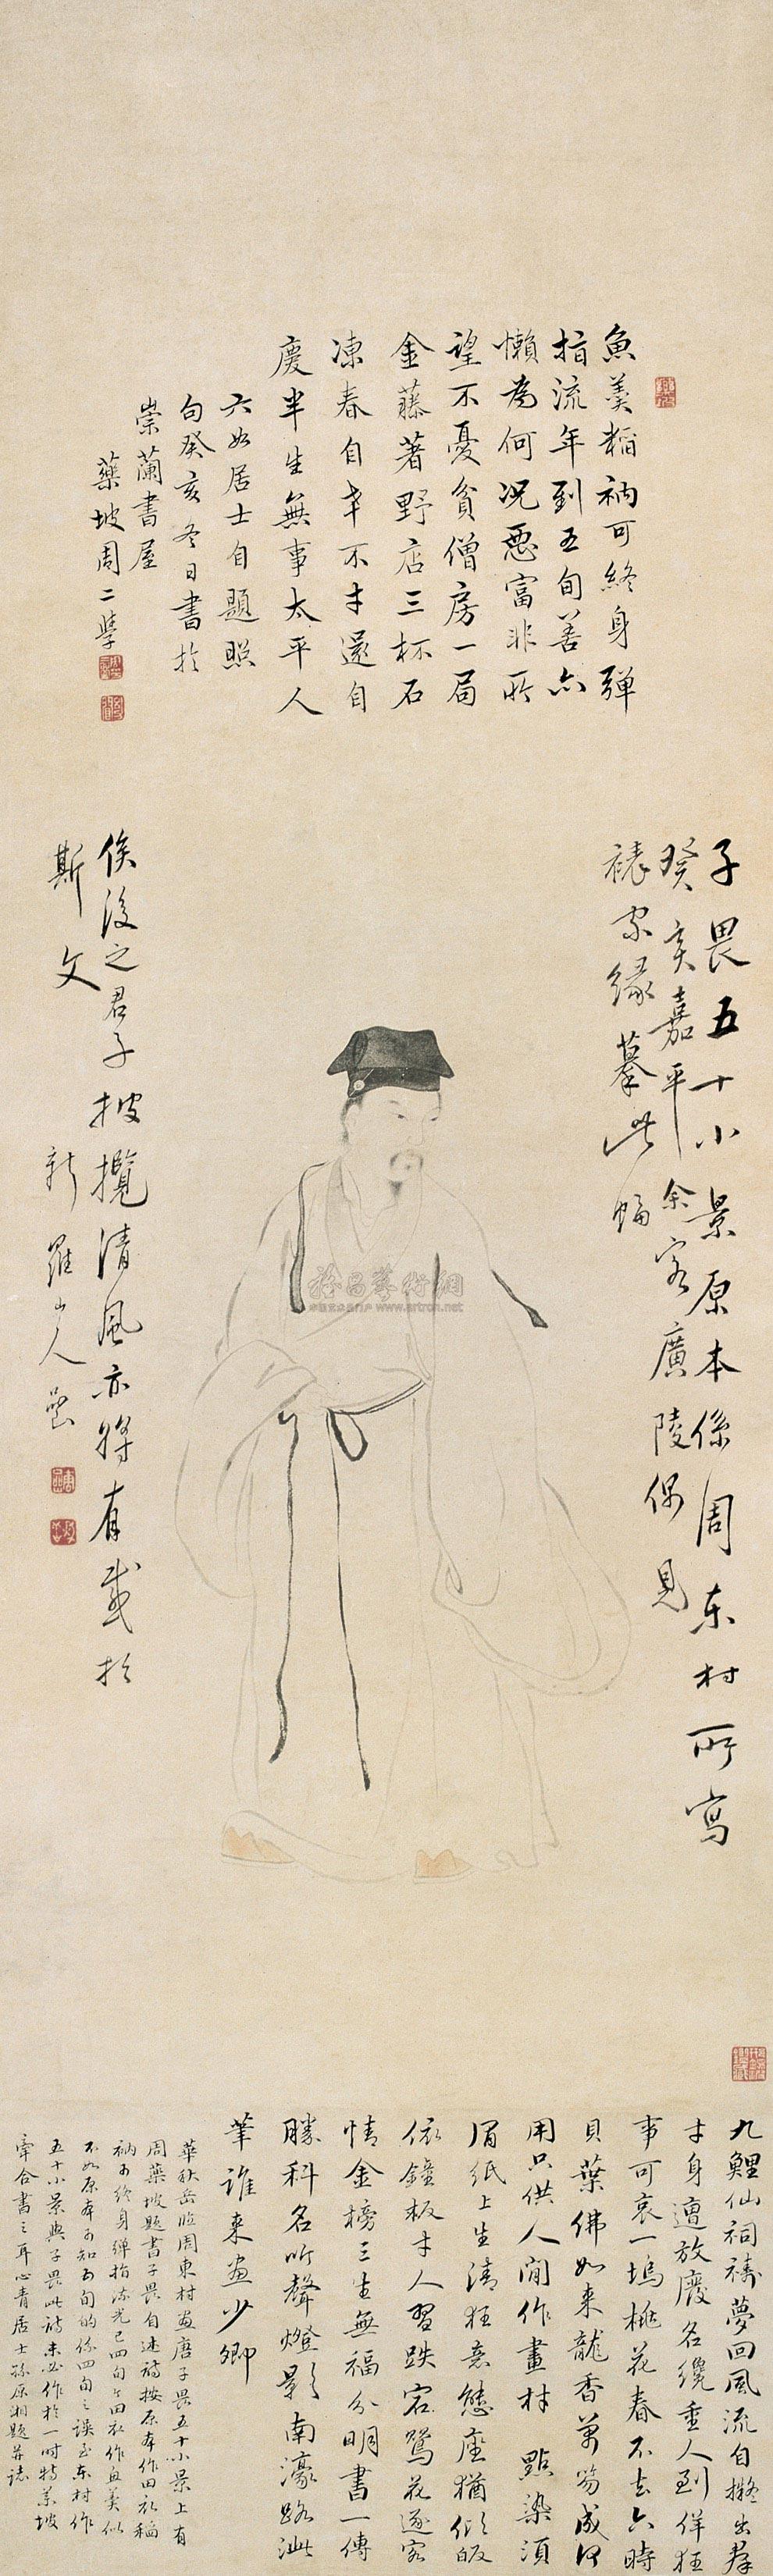 魚羹稻衲可終身彈
指流年到五旬善亦
懶為何況惡富非所
望不憂貧僧房一局
金藤著野店三杯石
凍春自幸不才還自
慶半生無事太平人
六如居士自題照
句癸亥冬日書於
崇蘭書屋
藥坡周二學
子畏五十小景原本係周東村所寫
癸亥嘉平余客廣陵偶見
裱家緣摹此幅
俟後之君子披攬清風亦將有感於
斯文
新羅山人嵒
雅昌藝術網
www.artron.net
九鯉仙祠禱夢回風流自擬出群
才身遭放廢名纔重人到佯狂
事可哀一塢桃花春不去六時
貝葉佛如來龍香萬笏成何
用只供人間作畫材 點染須
眉紙上生清狂意態座猶傾皈
依鐘板才人習跌宕鶯花逐客
情金榜三生無福分明書一傳
勝科名吟聲燈影南濠路此
筆誰來畫少卿
華秋岳臨周東村畫唐子畏五十小景上有
周藥坡題書子畏自述詩按原本作田衣稻
衲可終身彈指流光已四旬今田衣作魚羹似
不如原本可知五旬的係四旬之誤至東村作
五十小景與子畏此詩未必作於一時特藥坡
牽合書之耳心青居士孫原湘題并誌